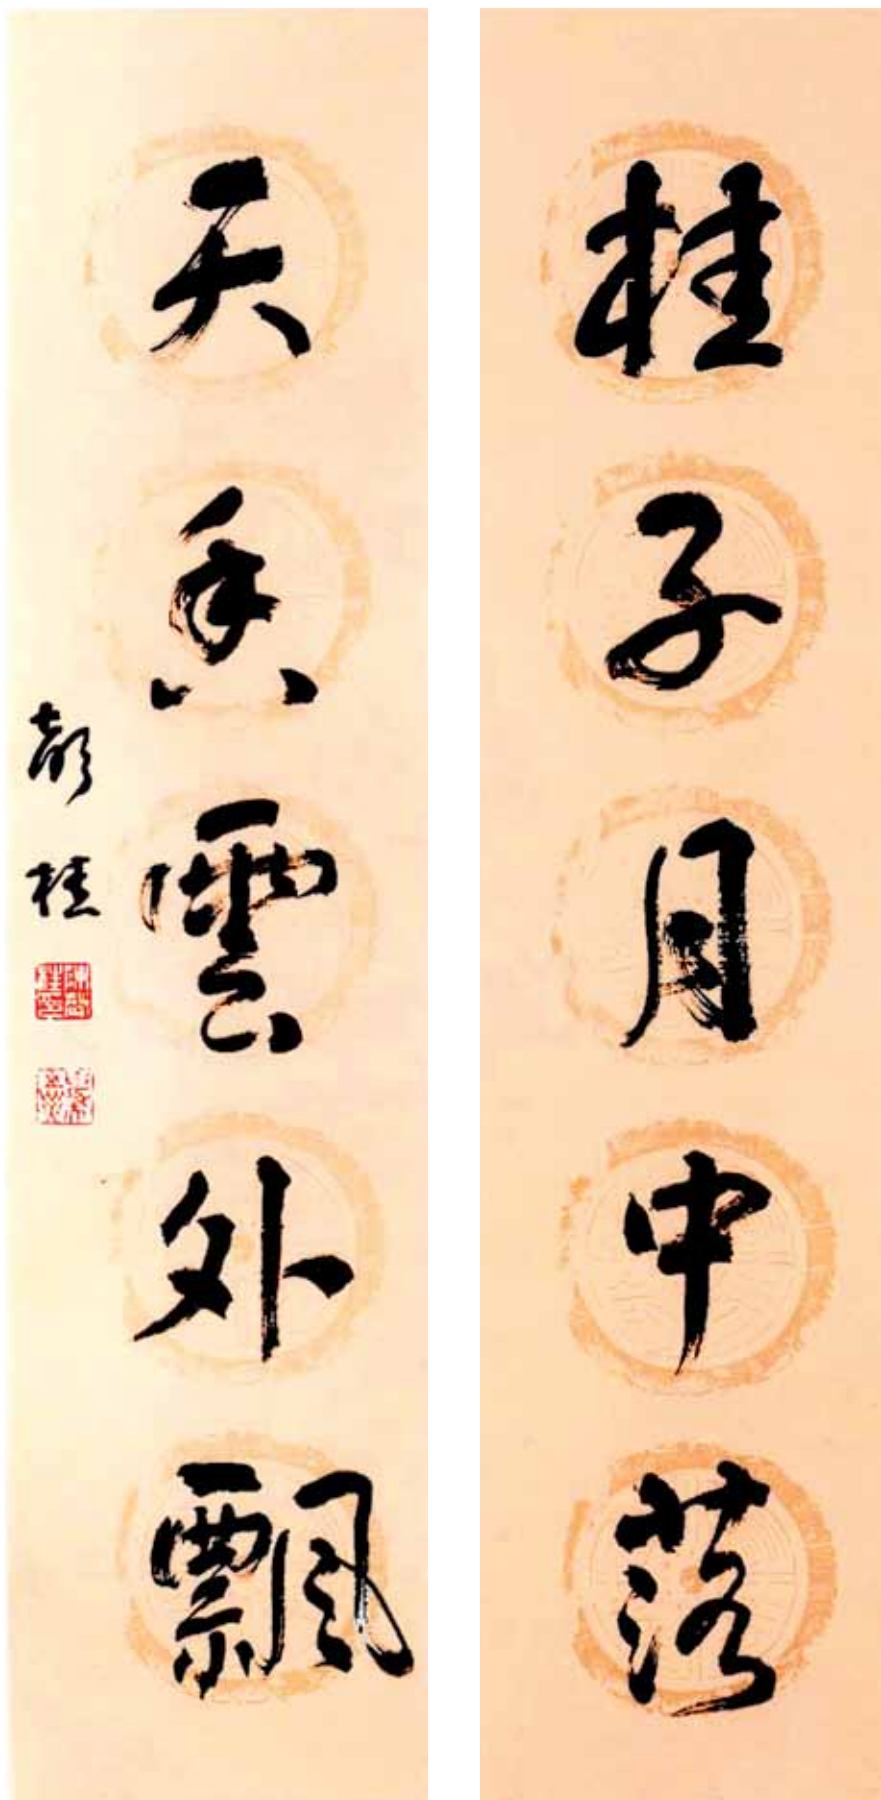 桂子月中落
天香雲外飄
彭桂